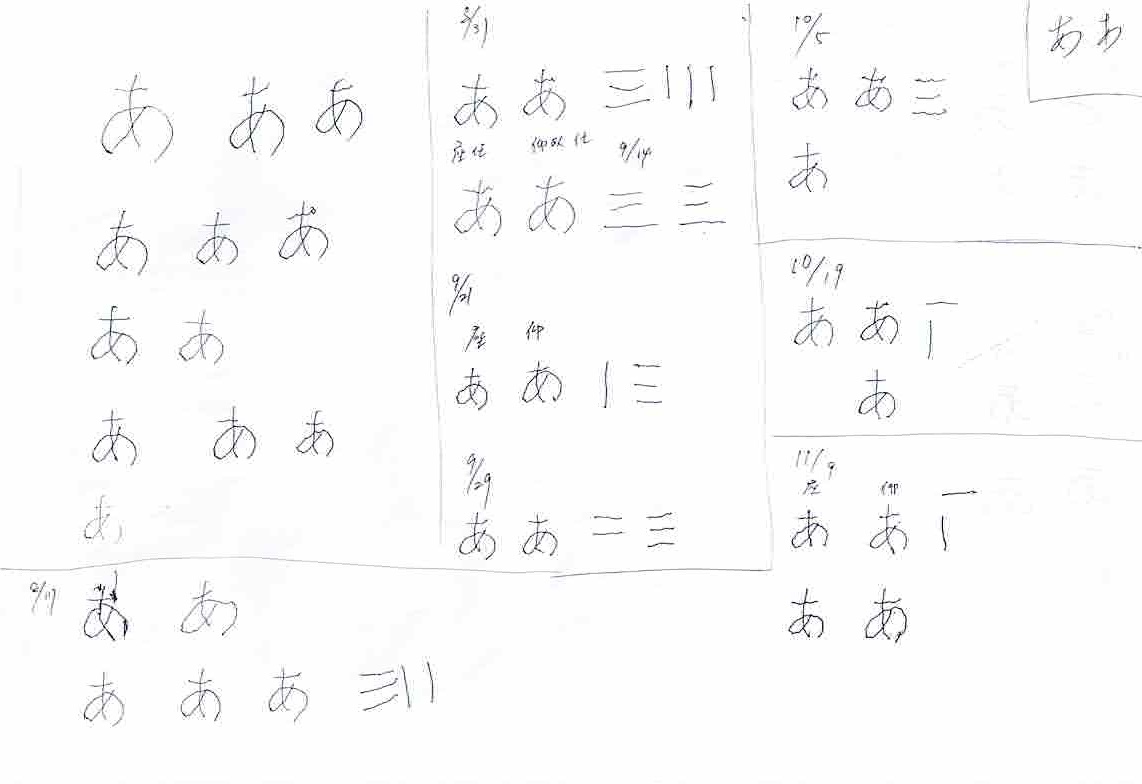 あ あ あ
あ あ あ
あ あ
あ あ あ
あ
あ あ
あ あ あ 三 | |
8/31
あ あ 三 | | |
座位 9/14
あ あ 三 三
9/21
座 仰
あ あ | 三
9/29
あ あ 二 三
10/5
あ あ 三
あ
あ あ
10/19
あ あ 一 |
あ
11/9
座 仰
あ あ 一 |
あ あ